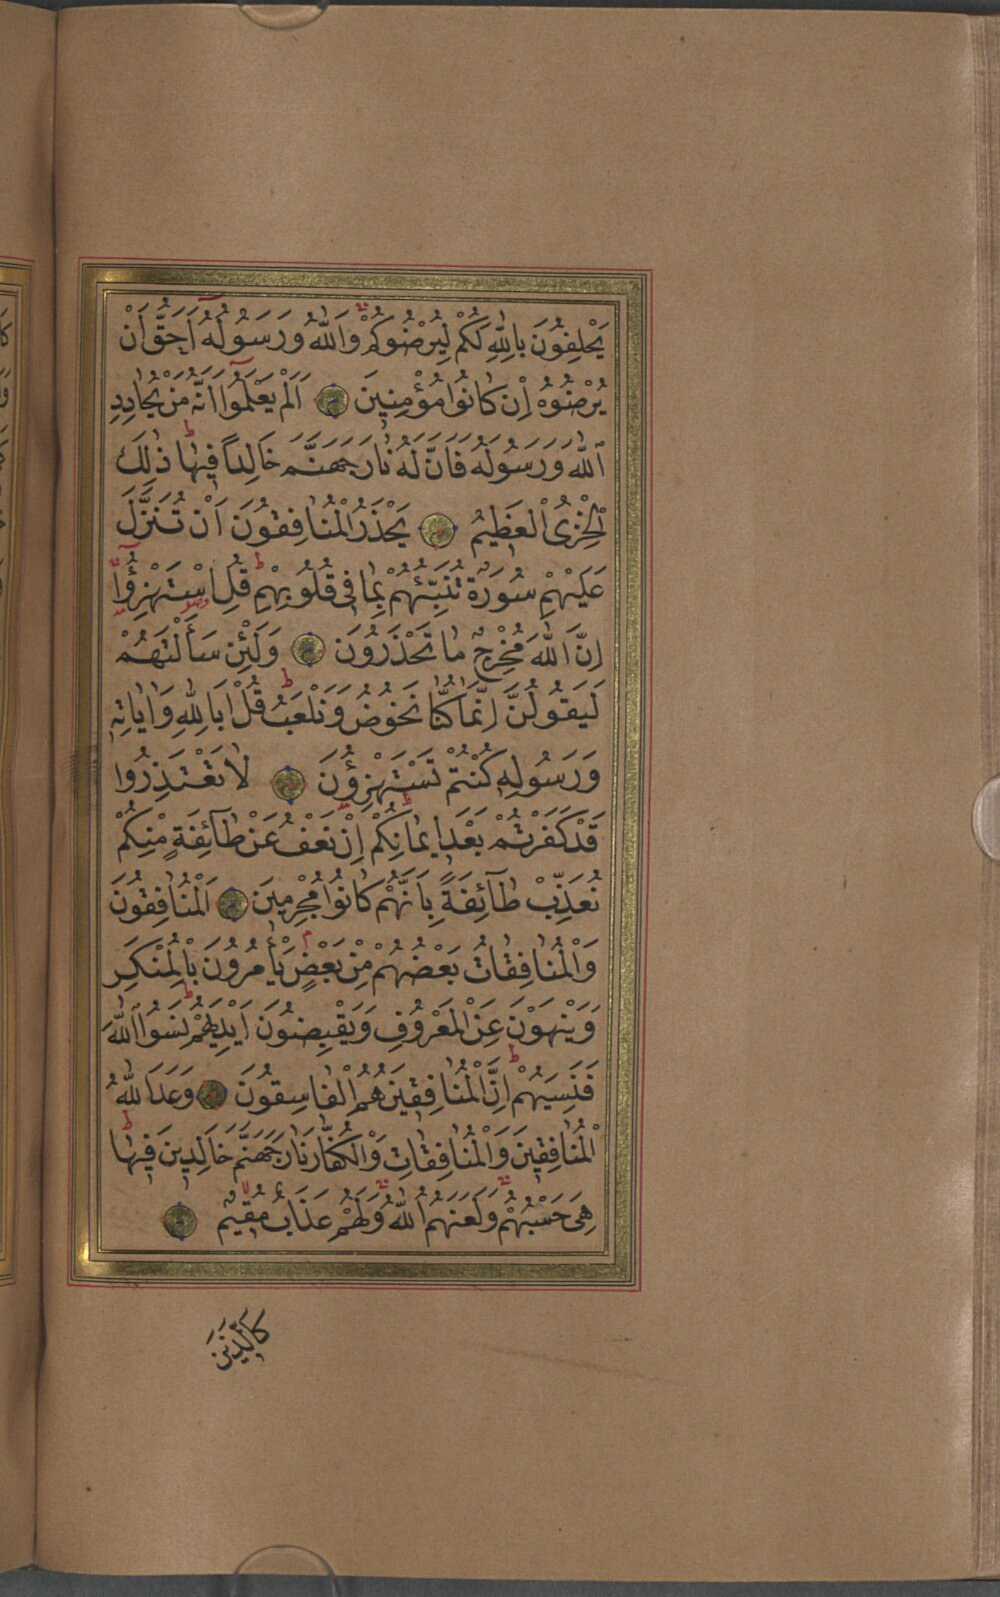 يَحْلِفُونَ بِاللّٰهِ لَكُمْ لِيُرْضُوكُمْ وَاللّٰهُ وَرَسُولُهُٓ اَحَقُّ اَنْ
يُرْضُوهُ اِنْ كَانُوا مُؤْمِنِينَ اَلَمْ يَعْلَمُٓوا اَنَّهُ مَنْ يُحَادِدِ
اللّٰهَ وَرَسُولَهُ فَاَنَّ لَهُ نَارَ جَهَنَّمَ خَالِدًا فِيهَا ذٰلِكَ
الْخِزْىُ الْعَظِيمُ يَحْذَرُ الْمُنَافِقُونَ اَنْ تُنَزَّلَ
عَلَيْهِمْ سُورَةٌ تُنَبِّئُهُمْ بِمَا فِى قُلُوبِهِمْ قُلِ اسْتَهْزِؤُٓا
اِنَّ اللّٰهَ مُخْرِجٌ مَا تَحْذَرُونَ وَلَئِنْ سَاَلْتَهُمْ
لَيَقُولُنَّ اِنَّمَا كُنَّا نَخُوضُ وَنَلْعَبُ قُلْ اَبِاللّٰهِ وَاٰيَاتِهِ
وَرَسُولِهِ كُنْتُمْ تَسْتَهْزِؤُنَ لَا تَعْتَذِرُوا
قَدْ كَفَرْتُمْ بَعْدَ اِيمَانِكُمْ اِنْ نَعْفُ عَنْ طَٓائِفَةٍ مِنْكُمْ
نُعَذِّبْ طَٓائِفَةً بِاَنَّهُمْ كَانُوا مُجْرِمِينَ اَلْمُنَافِقُونَ
وَالْمُنَافِقَاتُ بَعْضُهُمْ مِنْ بَعْضٍ يَأْمُرُونَ بِالْمُنْكَرِ
وَيَنْهَوْنَ عَنِ الْمَعْرُوفِ وَيَقْبِضُونَ اَيْدِيَهُمْ نَسُوا اللّٰهَ
فَنَسِيَهُمْ اِنَّ الْمُنَافِقِينَ هُمُ الْفَاسِقُونَ وَعَدَ اللّٰهُ
الْمُنَافِقِينَ وَالْمُنَافِقَاتِ وَالْكُفَّارَ نَارَ جَهَنَّمَ خَالِدِينَ فِيهَا
هِىَ حَسْبُهُمْ وَلَعَنَهُمُ اللّٰهُ وَلَهُمْ عَذَابٌ مُقِيمٌ
كَالَّذِينَ